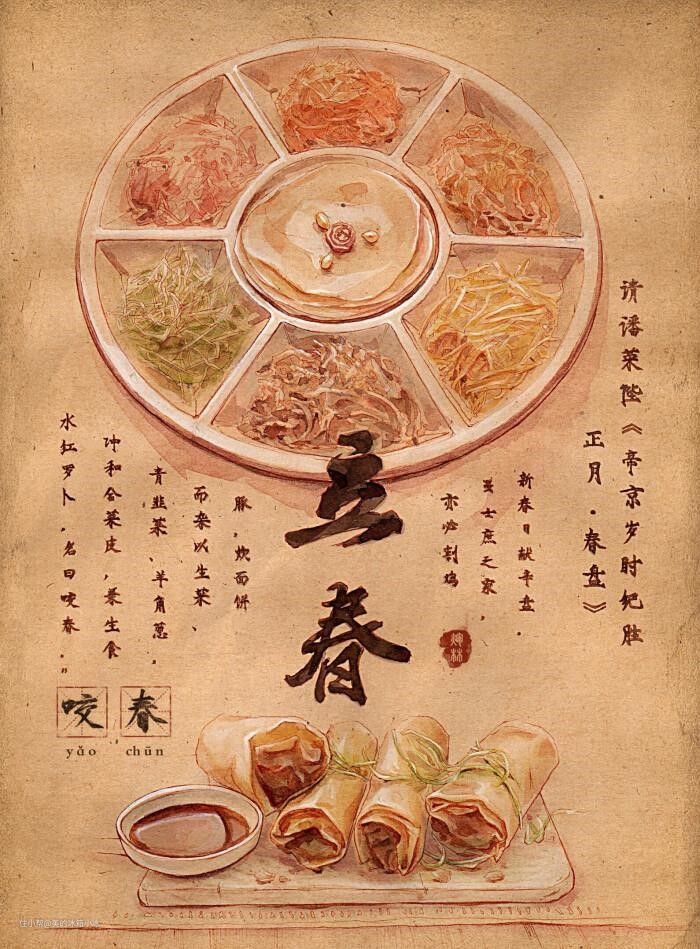 请潘菜陛《帝京岁时纪胜
正月·春盘》
新春日献辛盘。
虽士庶之家，
亦必割鸡
豚，炊面饼
而杂以生菜、
青韭菜、羊角葱，
冲和合菜皮，兼生食
水红萝卜，名曰咬春。"
立春
咬春
yǎo chūn